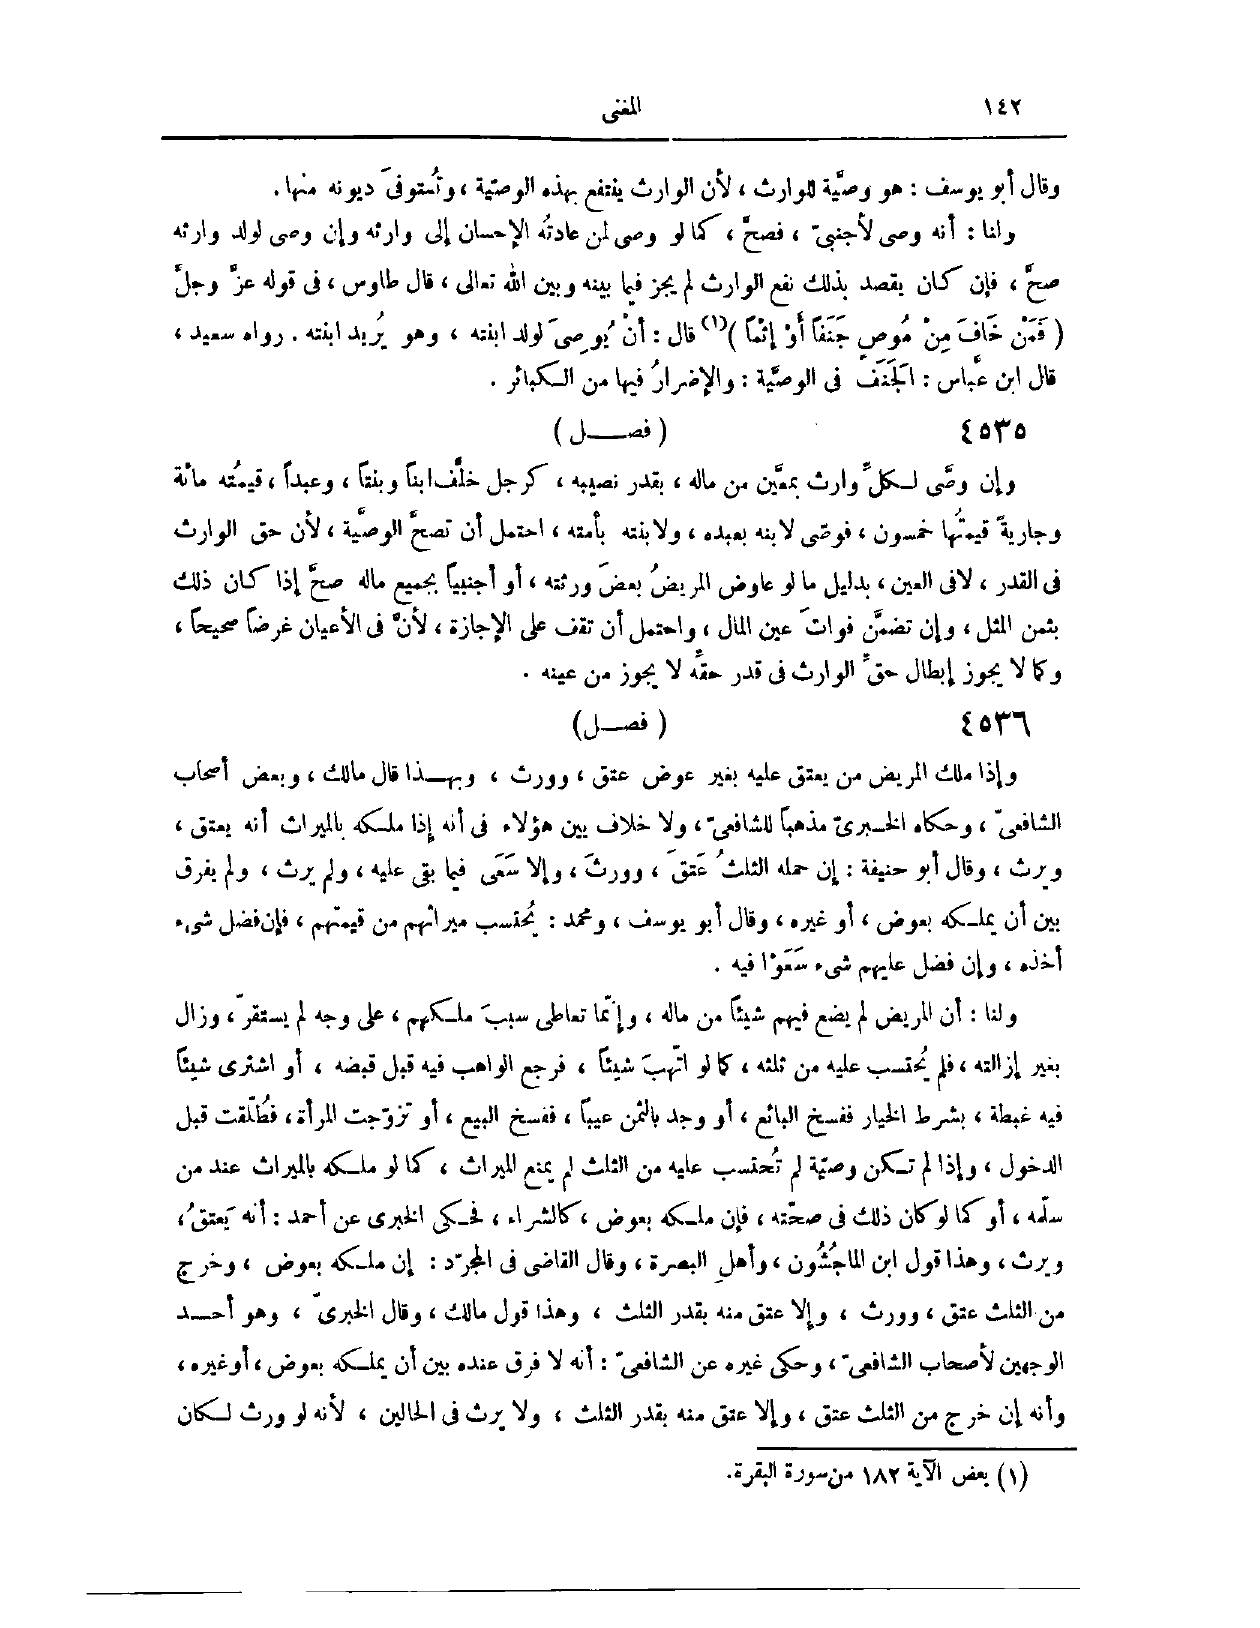 ١٤٢ المغنى
وقال أبو يوسف : هو وصيَّة للوارث ، لأن الوارث ينتفع بهذه الوصيَّة ، وتُستوفىَ ديونه منها .
ولنا : أنه وصى لأجنبىّ ، فصحَّ ، كما لو وصى لمن عادتُه الإحسان إلى وارثه وإن وصى لولد وارثه
صحَّ ، فإن كان يقصد بذلك نفع الوارث لم يجز فيما بينه وبين الله تعالى ، قال طاوس ، فى قوله عزَّ وجلَّ
( فَمَنْ خَافَ مِنْ مُوصٍ جَنَفاً أَوْ إِثْماً )(١) قال : أنْ يُوصِىَ لولد ابنته ، وهو يُريد ابنته . رواه سعيد ،
قال ابن عبَّاس : الجَنَفُ فى الوصيَّة : والإضرارُ فيها من الكبائر .
٤٥٣٥ ( فصـــل )
وإن وصَّى لكلِّ وارث بمعيَّن من ماله ، بقدر نصيبه ، كرجل خلَّف ابناً وبنتاً ، وعبداً ، قيمتُه مائة
وجاريةً قيمتُها خمسون ، فوصّى لابنه بعبده ، ولابنته بأمته ، احتمل أن تصحَّ الوصيَّة ، لأن حق الوارث
فى القدر ، لافى العين ، بدليل ما لو عاوض المريضُ بعضَ ورثته ، أو أجنبياً بجميع ماله صحَّ إذا كان ذلك
بثمن المثل ، وإن تضمَّن فواتَ عين المال ، واحتمل أن تقف على الإجازة ، لأنَّ فى الأعيان غرضاً صحيحاً ،
وكما لا يجوز إبطال حقِّ الوارث فى قدر حقِّه لا يجوز من عينه .
٤٥٣٦ ( فصــل )
وإذا ملك المريض من يعتق عليه بغير عوض عتق ، وورث ، وبهــذا قال مالك ، وبعض أصحاب
الشافعىّ ، وحكاه الخــبرىّ مذهباً للشافعىّ ، ولا خلاف بين هؤلاء فى أنه إذا ملكه بالميراث أنه يعتق ،
ويرث ، وقال أبو حنيفة : إن حمله الثلثُ عَتقَ ، وورثَ ، وإلا سَعَى فيما بقى عليه ، ولم يرث ، ولم يفرق
بين أن يملكه بعوض ، أو غيره ، وقال أبو يوسف ، ومحمد : يُحتسب ميراثهم من قيمتهم ، فإن فضل شىء
أخذه ، وإن فضل عليهم شىء سَعَوْا فيه .
ولنا : أن المريض لم يضع فيهم شيئاً من ماله ، وإنّما تعاطى سببَ ملكهم ، على وجه لم يستقرّ ، وزال
بغير إزالته ، فلم يُحتسب عليه من ثلثه ، كما لو اتّهبَ شيئاً ، فرجع الواهب فيه قبل قبضه ، أو اشترى شيئاً
فيه غبطة ، بشرط الخيار ففسخ البائع ، أو وجد بالثمن عيباً ، ففسخ البيع ، أو تزوّجت المرأة ، فطُلّقت قبل
الدخول ، وإذا لم تكن وصيّة لم تُحتسب عليه من الثلث لم يمنع الميراث ، كما لو ملكه بالميراث عند من
سلّمه ، أو كما لو كان ذلك فى صحّته ، فإن ملكه بعوض ، كالشراء ، فحكى الخبرى عن أحمد : أنه يَعتقُ ،
ويرث ، وهذا قول ابن الماجُشُون ، وأهلِ البصرة ، وقال القاضى فى المجرّد : إن ملكه بعوض ، وخرج
من الثلث عتق ، وورث ، وإلا عتق منه بقدر الثلث ، وهذا قول مالك ، وقال الخبرىّ ، وهو أحــد
الوجهين لأصحاب الشافعىّ ، وحكى غيره عن الشافعىّ : أنه لا فرق عنده بين أن يملكه بعوض ، أوغيره ،
وأنه إن خرج من الثلث عتق ، وإلا عتق منه بقدر الثلث ، ولا يرث فى الحالين ، لأنه لو ورث لكان
(١) بعض الآية ١٨٢ من سورة البقرة.